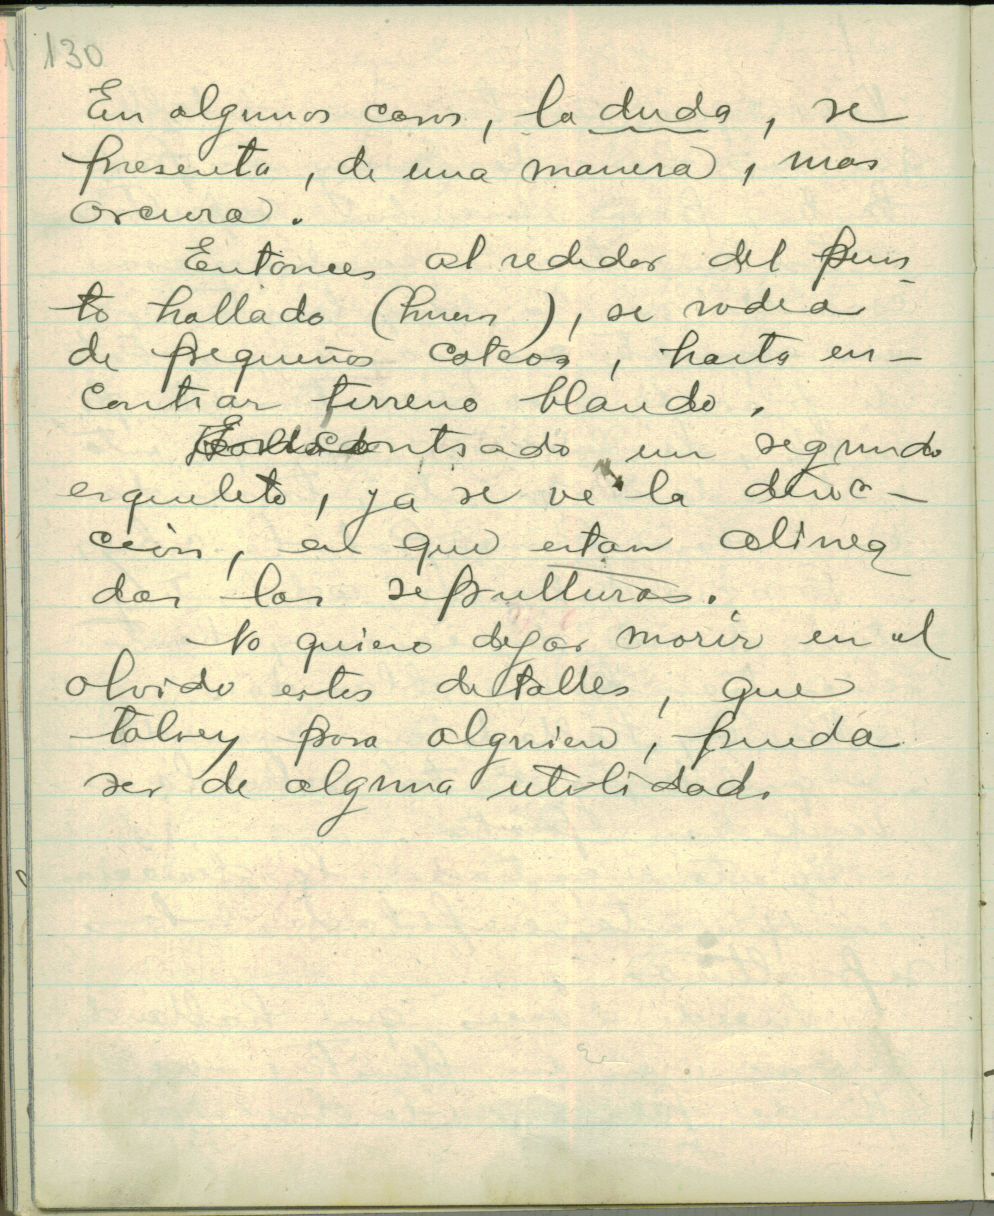 130
En algunos casos, la duda, se
presenta, de una manera, mas
oscura.
Entonces al rededor del pun-
to hallado (hueso), se rodea
de pequeños cateos, hasta en-
contrar terreno blando.
Encontrado un segundo
esqueleto, ya se ve la direc-
ción, en que estan alinea
das las sepulturas.
No quiero dejar morir en el
olvido estos detalles, que
talvez para alguien, pueda
ser de alguna utilidad.